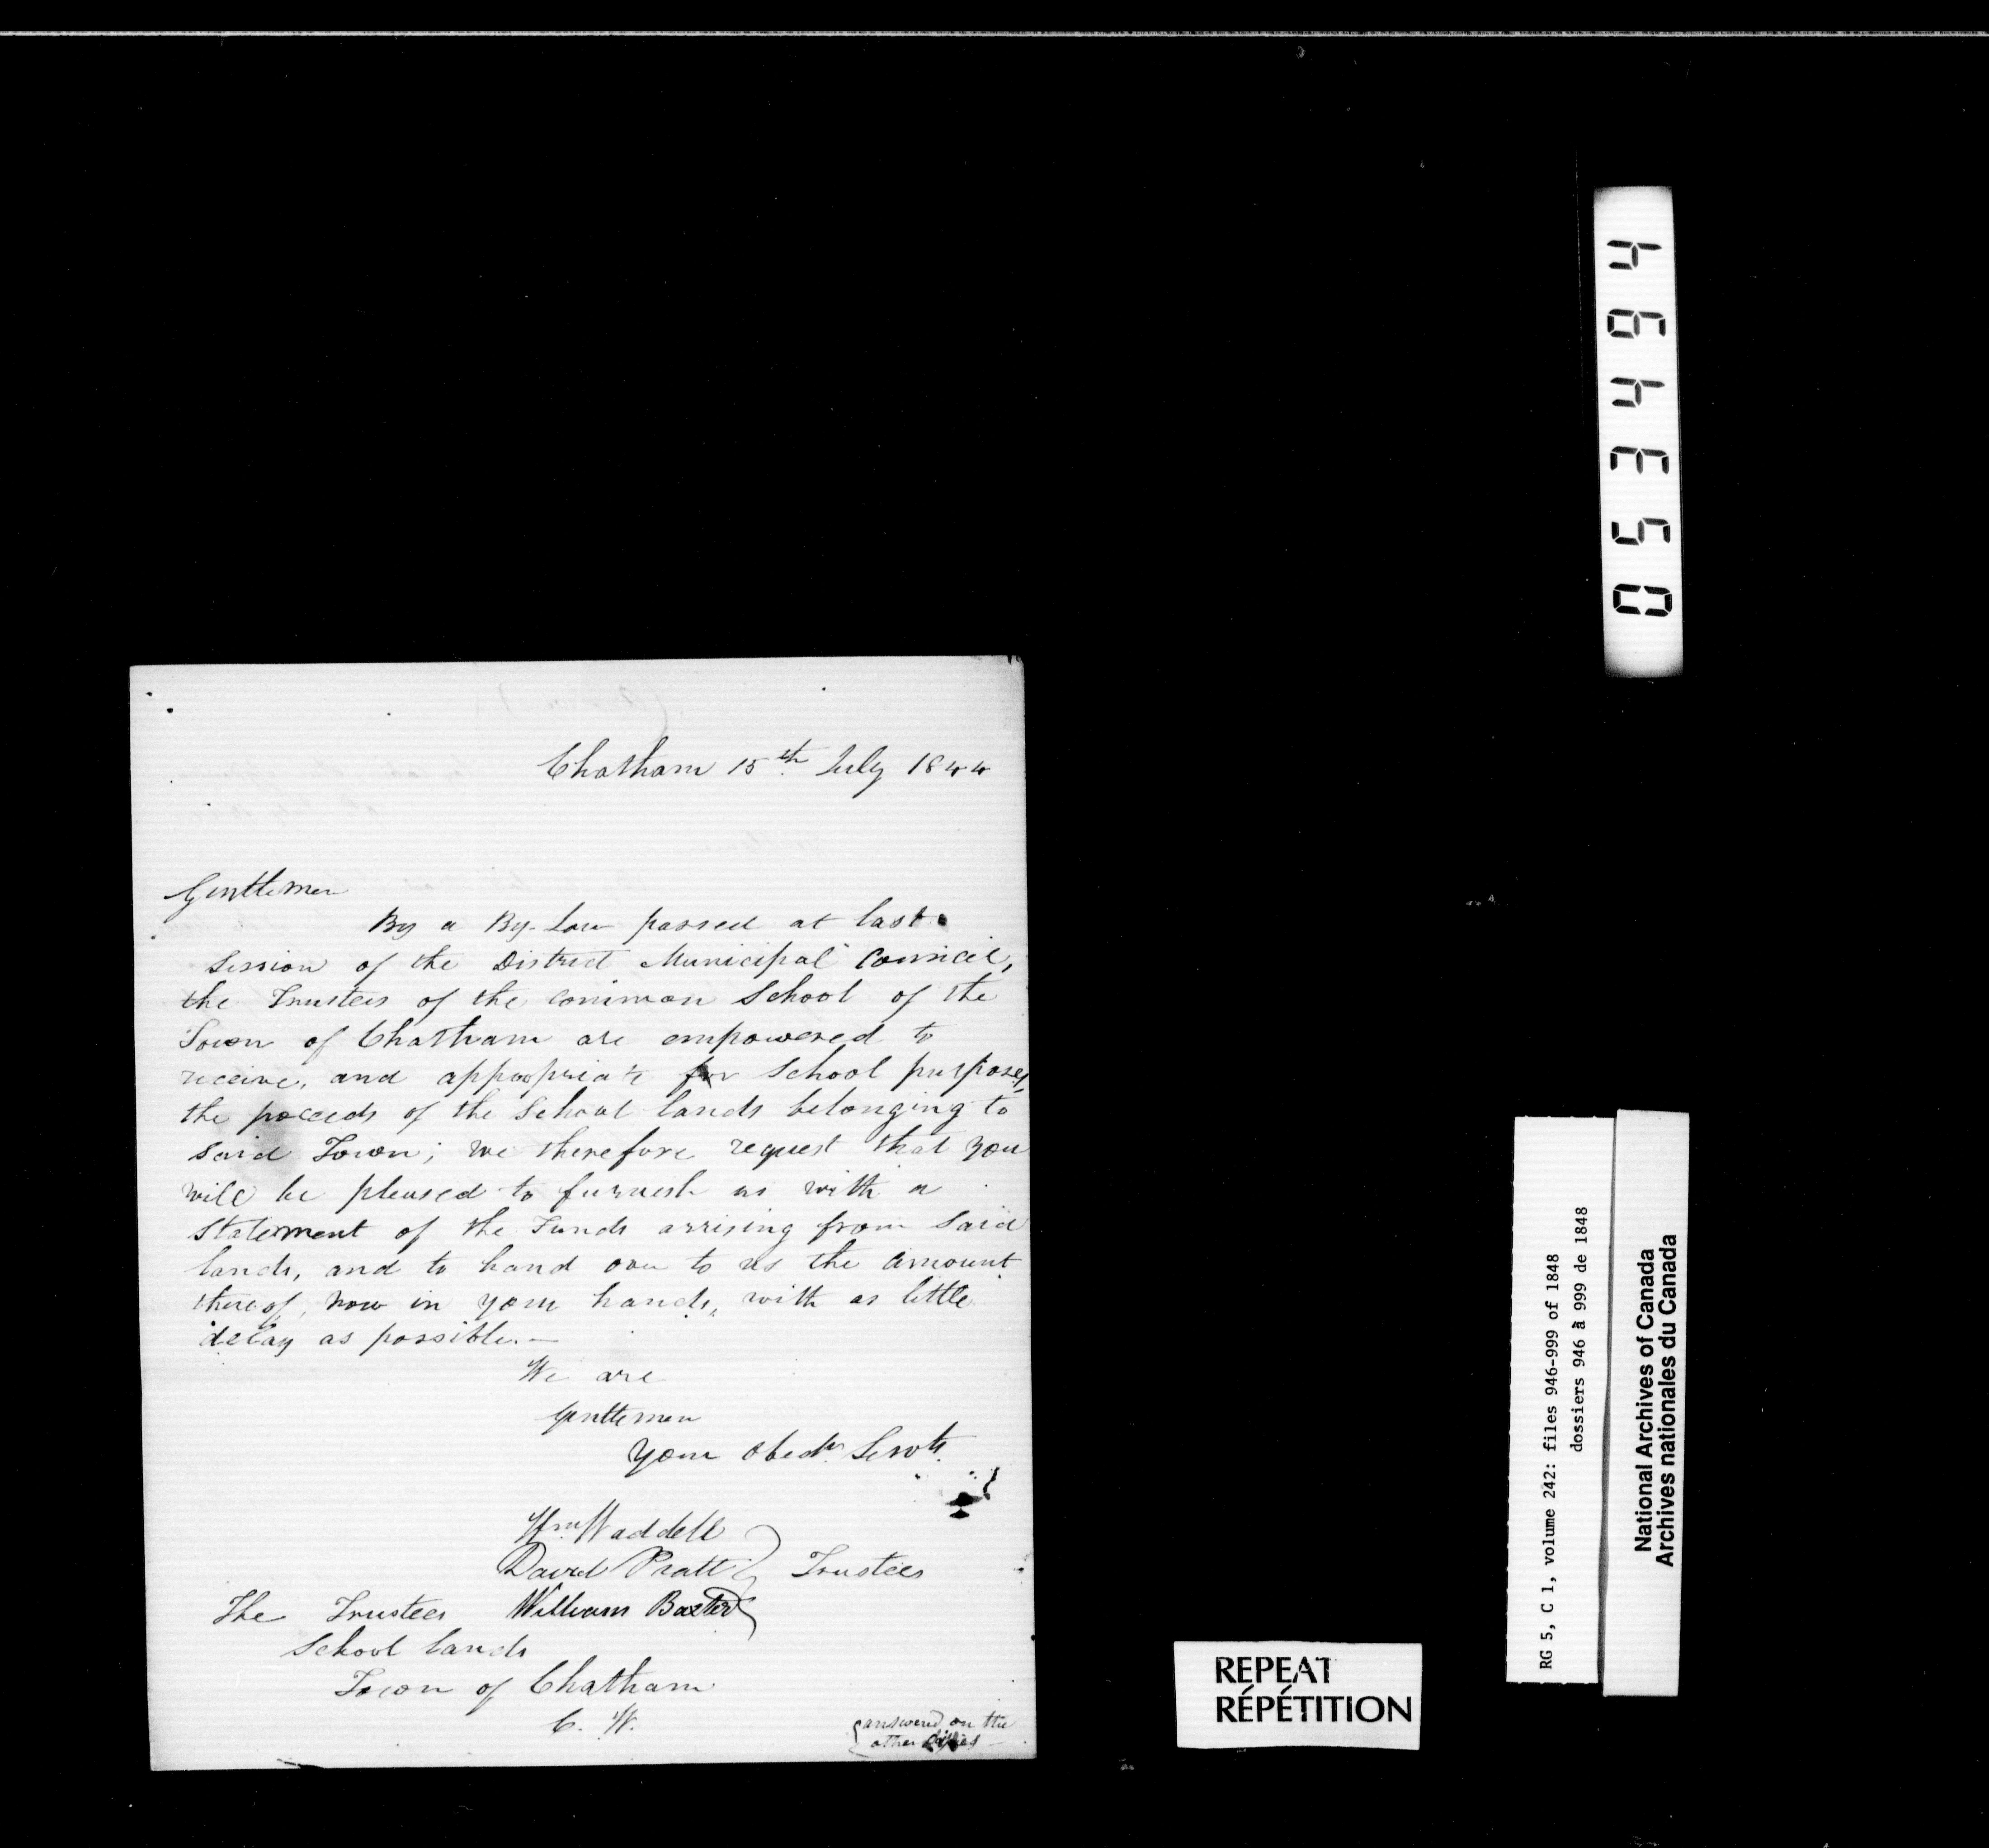 Chatham 15th July 1844
Gentlemen
By a By-Law passed at last
Session of the District Municipal Council,
the Trustees of the common School of the
Town of Chatham are empowered to
receive, and appropriate for School purposes,
the proceeds of the School lands belonging to
said Town; we therefore request that you
will be pleased to furnish us with a
Statement of the Funds arrising from Said
lands, and to hand over to us the amount
thereof, now in your hands, with as little
delay as possible.—
We are
Gentlemen
Your Obedt Servts
Wm. Waddell
David Pratt } Trustees
William Baxter
The Trustees
School lands
Town of Chatham
C. W.
{answered on the
other
053464
RG 5, C 1, volume 242: files 946-999 of 1848
dossiers 946 à 999 de 1848
National Archives of Canada
Archives nationales du Canada
REPEAT
RÉPÉTITION